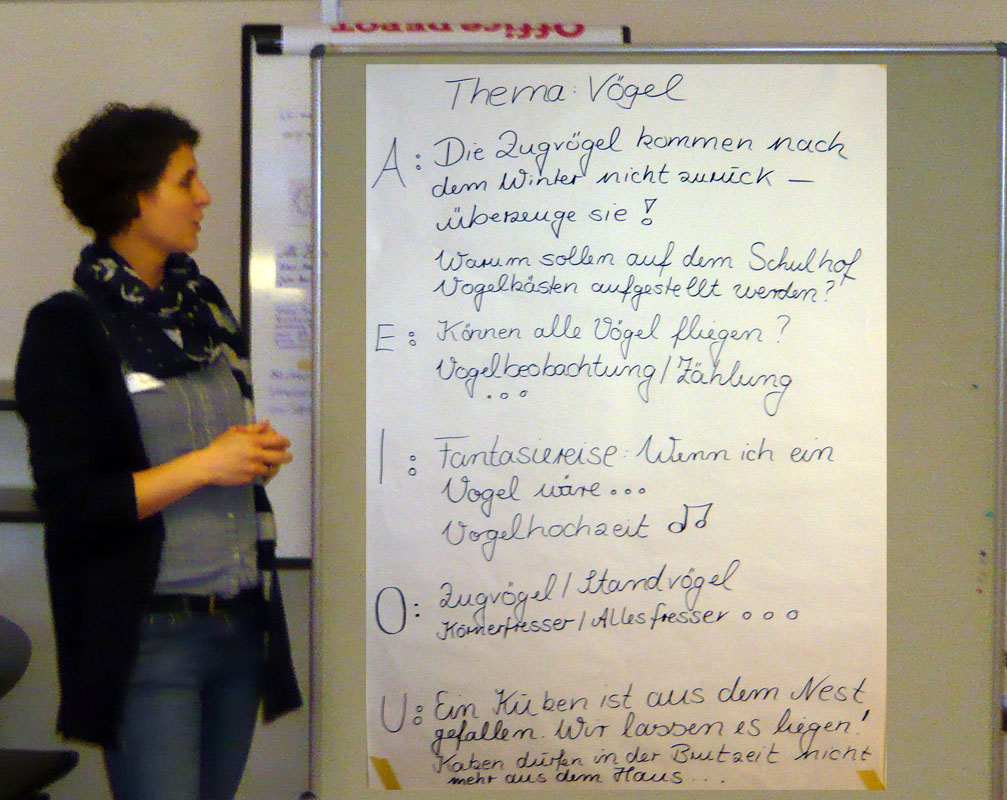 Office DEPOT
Thema: Vögel
A: Die Zugvögel kommen nach
dem Winter nicht zurück –
überzeuge sie!
Warum sollen auf dem Schulhof
Vogelkästen aufgestellt werden?
E: Können alle Vögel fliegen?
Vogelbeobachtung/Zählung
...
I: Fantasiereise: Wenn ich ein
Vogel wäre...
Vogelhochzeit ♫
O: Zugvögel/Standvögel
Körnerfresser/Allesfresser ...
U: Ein Küken ist aus dem Nest
gefallen. Wir lassen es liegen!
Katzen dürfen in der Brutzeit nicht
mehr aus dem Haus...